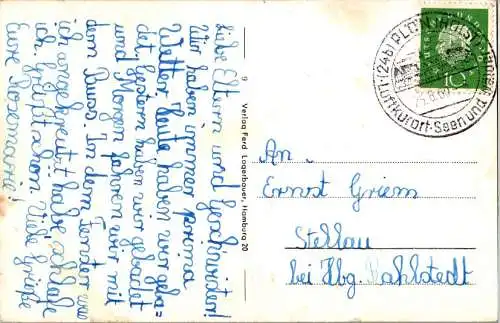 Liebe Eltern und Geschwister!
Wir haben immer prima
Wetter. Heute haben wir geba=
det. Gestern haben wir gebadet
und Morgen fahren wir mit
dem Buss. In dem Fenster wo
ich angekreuzt habe schlafe
ich. Grüßt schon Viele Grüße
Eure Rosemarie!
9
Verlag Ferd. Lagerbauer, Hamburg 20
(24b) PLÖN (HOLST)
Luftkurort · Seen und
10
An
Ernst Griem
Stellau
bei Hbg. Rahlstedt